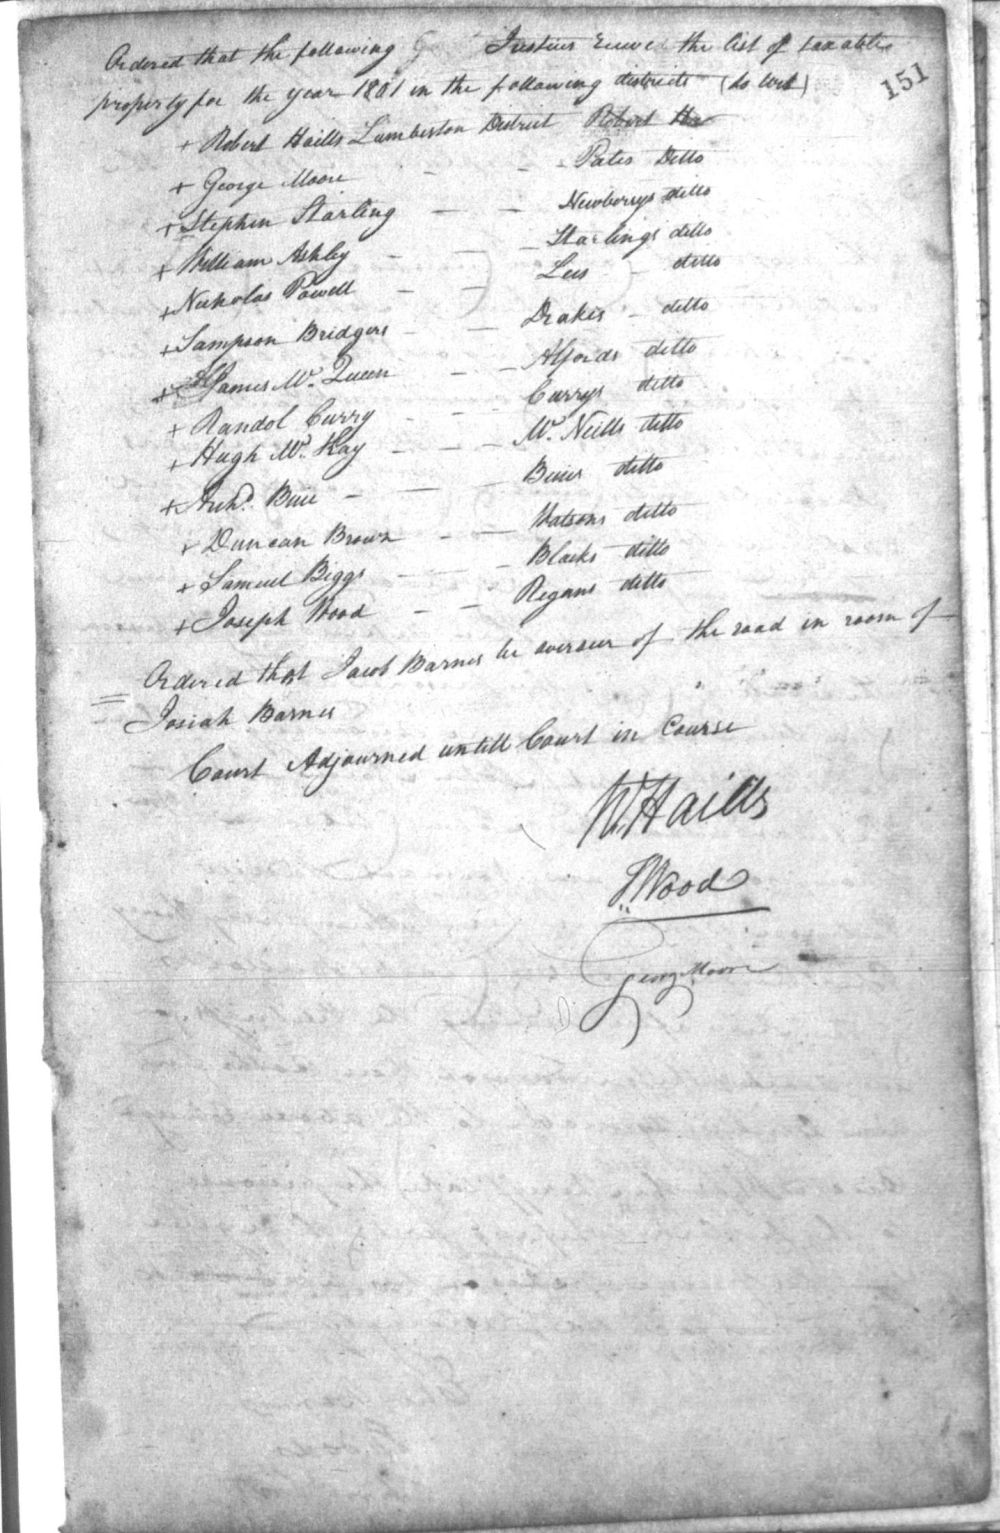 Ordered that the following Justices receive the list of taxable
property for the year 1801 in the following districts (to wit)
151
+ Robert Haills Lumberton District Robert Ha
+ George Moore - - Pates Ditto
+ Stephen Starling - - Newberrys ditto
+ William Ashby - - Starlings ditto
+ Nickolas Powell - - Lees - ditto
+ Sampson Bridgers - - Drakes - ditto
+ James Mc. Queen - - Alfords ditto
+ Randol Curry - - Currys ditto
+ Hugh Mc. Kay - - - Mc. Neills ditto
+ Archd. Buie - - - Buies ditto
+ Duncan Brown - - Watsons ditto
+ Samuel Biggs - - Blacks ditto
+ Joseph Wood - - Regans ditto
= Ordered that Jacob Barnes be overseer of the road in room of
Josiah Barnes
Court Adjourned untill Court in Course
R. Haills
J. Wood
George Moore